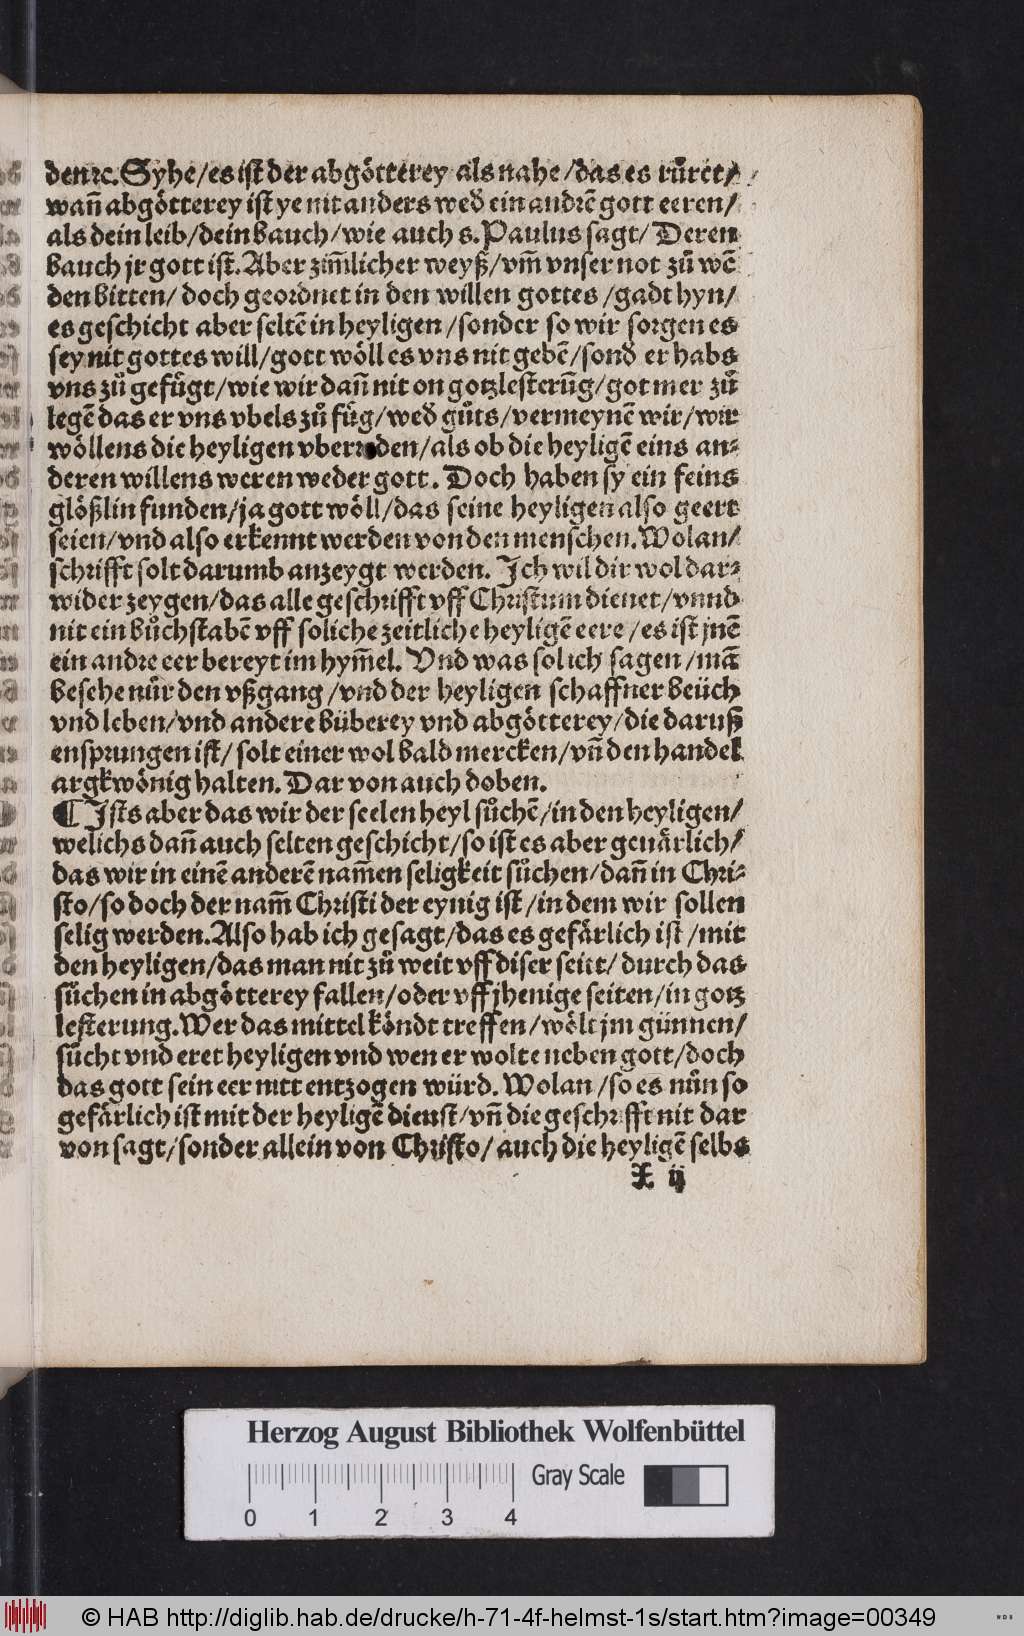 den ꝛc. Syhe/es ist der abgötterey als nahe/das es růret/
wañ abgötterey ist ye nit anders wed̕ ein andrē gott eeren/
als dein leib/dein bauch/wie auch s. Paulus sagt/ Deren
bauch jr gott ist. Aber zim̄licher weyß/vm̄ vnser not zů wē
den bitten/ doch geordnet in den willen gottes/gadt hyn/
es geschicht aber seltē in heyligen/sonder so wir sorgen es
sey nit gottes will/gott wöll es vns nit gebē/sond̕ er habs
vns zů gefügt/wie wir dañ nit on gotzlesterūg/got mer zů
legē das er vns vbels zů füg/wed̕ gůts/vermeynē wir/wir
wöllens die heyligen vberreden/als ob die heyligē eins an⸗
deren willens weren weder gott. Doch haben sy ein feins
glößlin funden/ja gott wöll/das seine heyligen also geert
seien/vnd also erkennt werden von den menschen. Wolan/
schrifft solt darumb anzeygt werden. Ich wil dir wol dar⸗
wider zeygen/das alle geschrifft vff Christum dienet/vnnd
nit ein bůchstabē vff soliche zeitliche heyligē eere/es ist jnē
ein andre eer bereyt im hym̄el. Vnd was sol ich sagen/mā
besehe nůr den vßgang/vnd der heyligen schaffner beüch
vnd leben/vnd andere büberey vnd abgötterey/die daruß
ensprungen ist/ solt einer wol bald mercken/vñ den handel
argkwönig halten. Dar von auch doben.
¶ Ists aber das wir der seelen heyl sůchē/in den heyligen/
welichs dañ auch selten geschicht/so ist es aber geuärlich/
das wir in einē anderē nam̄en seligkeit sůchen/dañ in Chri⸗
sto/so doch der nam̄ Christi der eynig ist/in dem wir sollen
selig werden. Also hab ich gesagt/das es gefärlich ist/mit
den heyligen/das man nit zů weit vff diser seitt/durch das
sůchen in abgötterey fallen/oder vff jhenige seiten/in gotz
lesterung. Wer das mittel köndt treffen/wölt jm günnen/
sůcht vnd eret heyligen vnd wen er wolte neben gott/doch
das gott sein eer nitt entzogen würd. Wolan/so es nůn so
gefärlich ist mit der heyligē dienst/vñ die geschrifft nit dar
von sagt/sonder allein von Christo/auch die heyligē selbs
X ij
Herzog August Bibliothek Wolfenbüttel
Gray Scale
0 1 2 3 4
© HAB http://diglib.hab.de/drucke/h-71-4f-helmst-1s/start.htm?image=00349